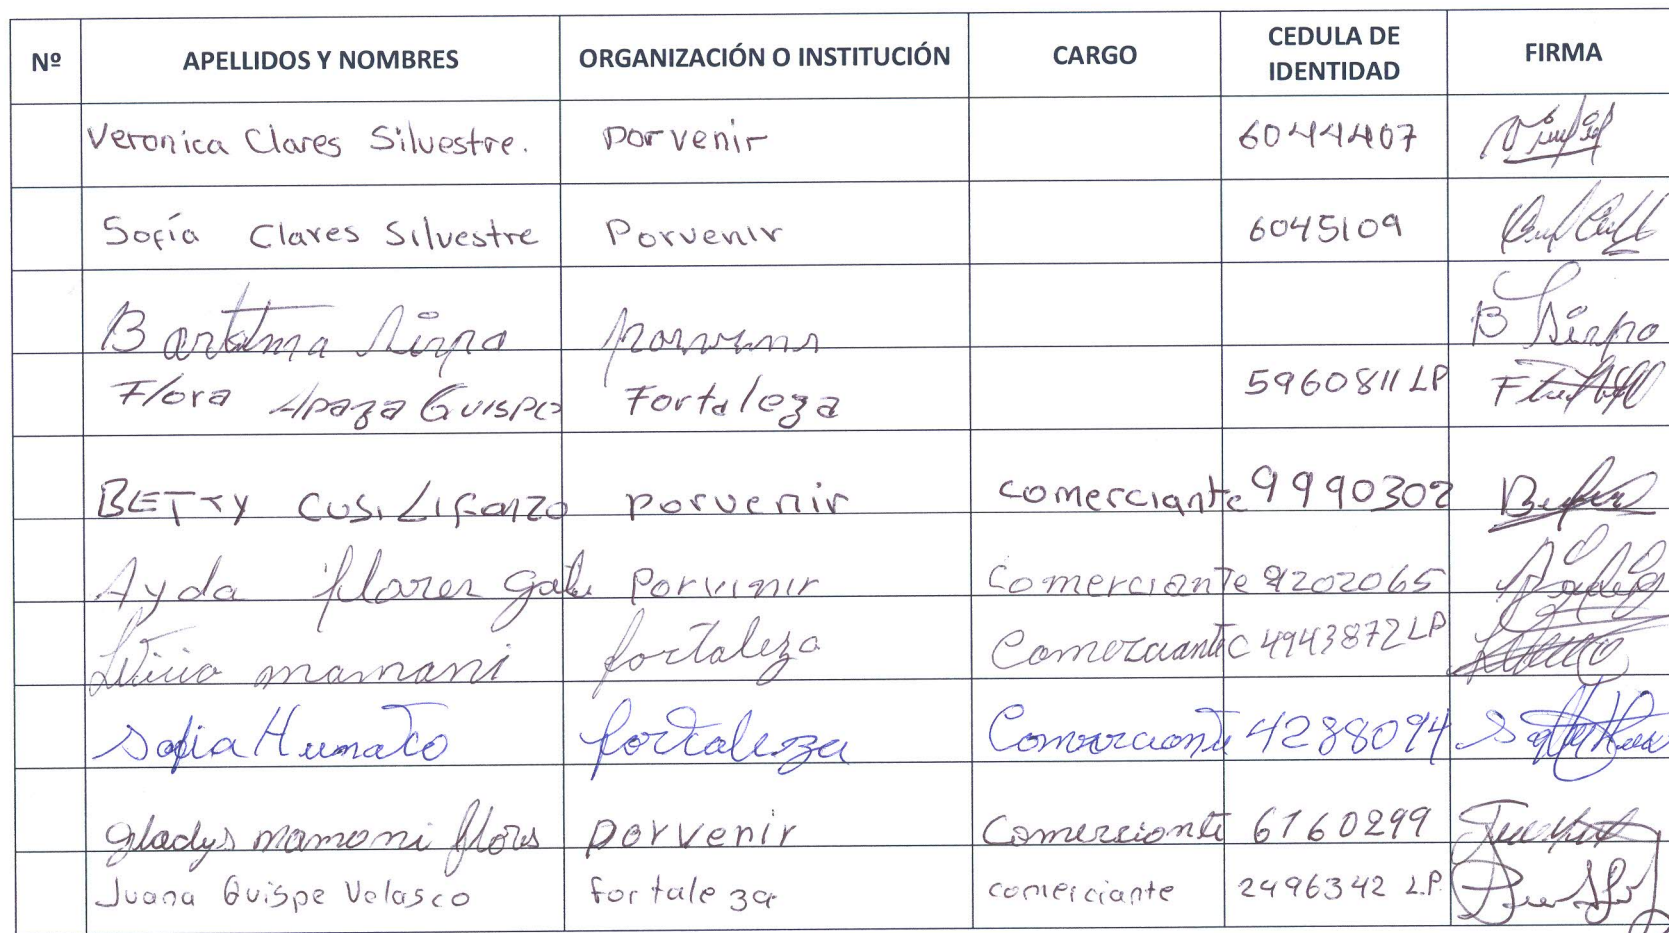 Nº APELLIDOS Y NOMBRES ORGANIZACIÓN O INSTITUCIÓN CARGO CEDULA DE IDENTIDAD FIRMA
Veronica Clares Silvestre. Porvenir 6044407
Sofía Clares Silvestre Porvenir 6045109
porvenir
Flora Apaza Quispe Fortaleza 5960811 LP
BETTY CUSI LIFONZO porvenir comerciante 9990302
Ayda flores Porvinir comerciante 9202065
mamani fortaleza 4943872 LP
Sofia fortaleza 4288094
gladys mamani flores porvenir 6160299
Juana Quispe Velasco fortaleza comerciante 2496342 L.P.